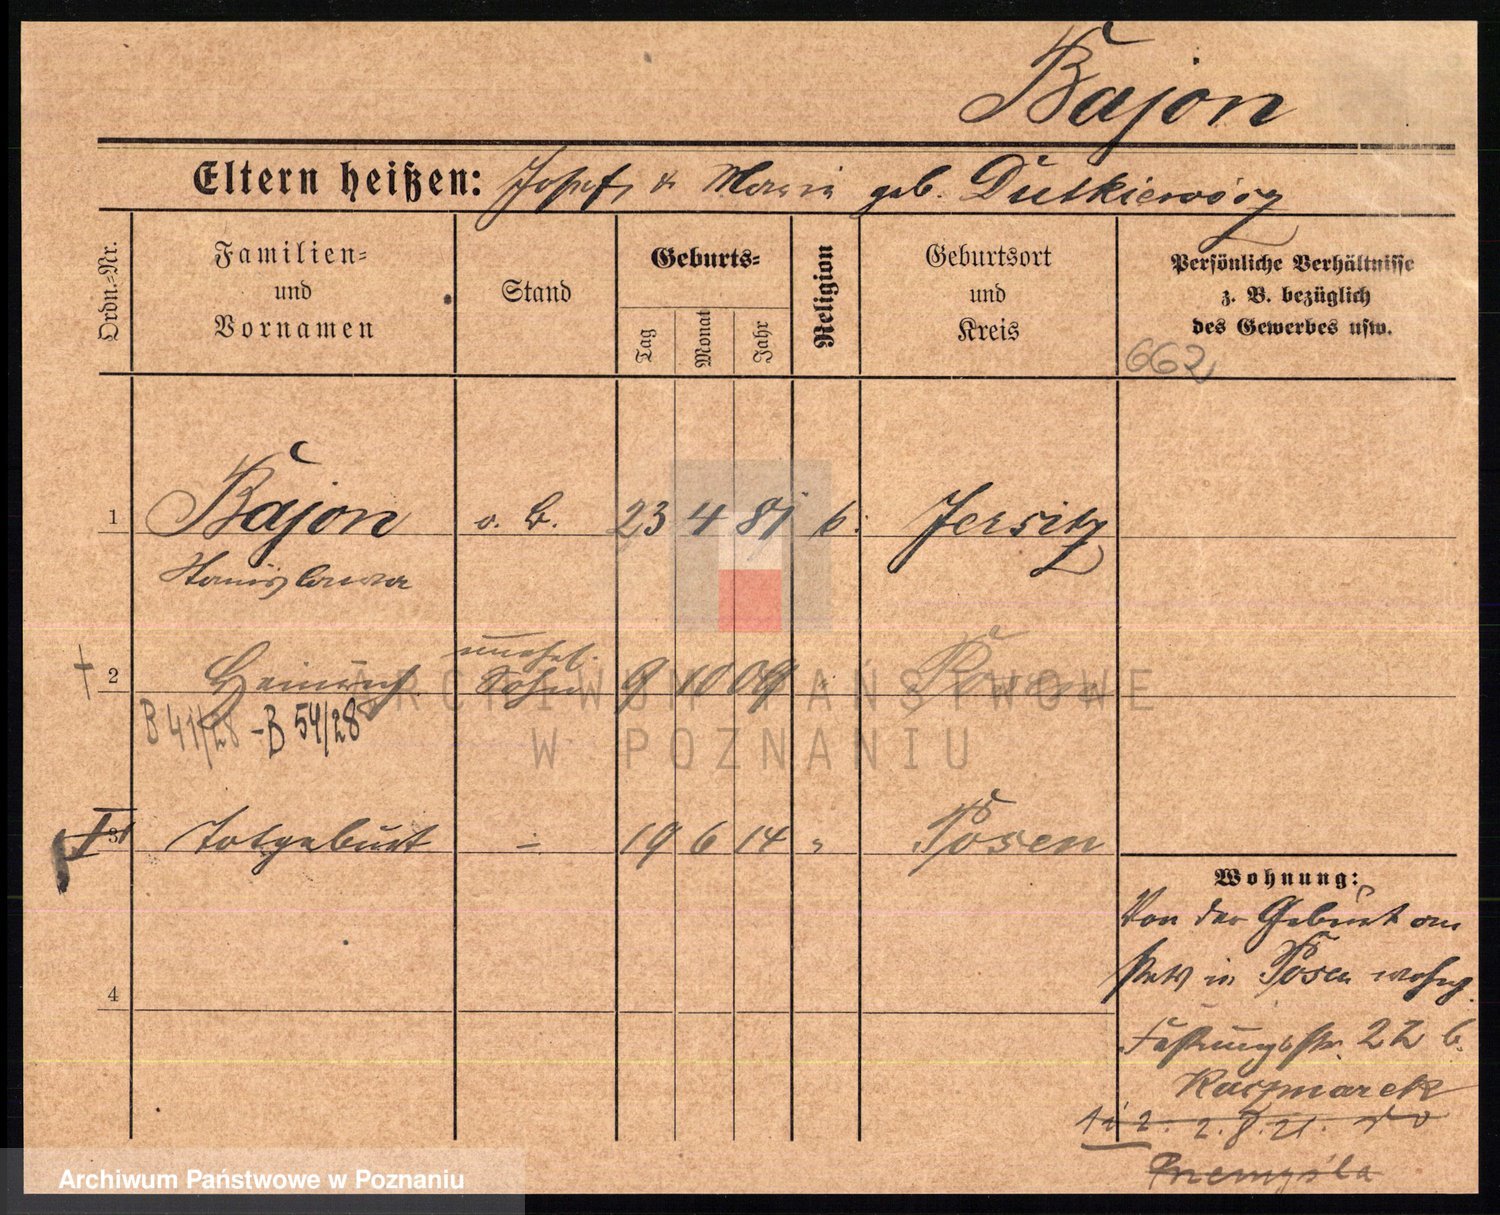 Bajon
Eltern heißen: Josef & Maria geb. Dutkiewicz
Ordn.=Nr.
Familien=
und
Vornamen
Stand
Geburts=
Tag
Monat
Jahr
Religion
Geburtsort
und
Kreis
Persönliche Verhältnisse
z. B. bezüglich
des Gewerbes usw.
662
1 Bajon o. B. 23 4 81 k. Jersitz
Stanislawa
unehel.
† 2 Heinrich Sohn 9 10 09 Posen
B 41/28 - B 54/28
3 Totgeburt - 19 6 14 " Posen
4
Wohnung:
Von der Geburt an
stets in Posen wohnh.
Festungsstr. 22 b.
Kaczmarek
2. 8. 21.
Przemysła
ARCHIWUM PAŃSTWOWE
W POZNANIU
Archiwum Państwowe w Poznaniu